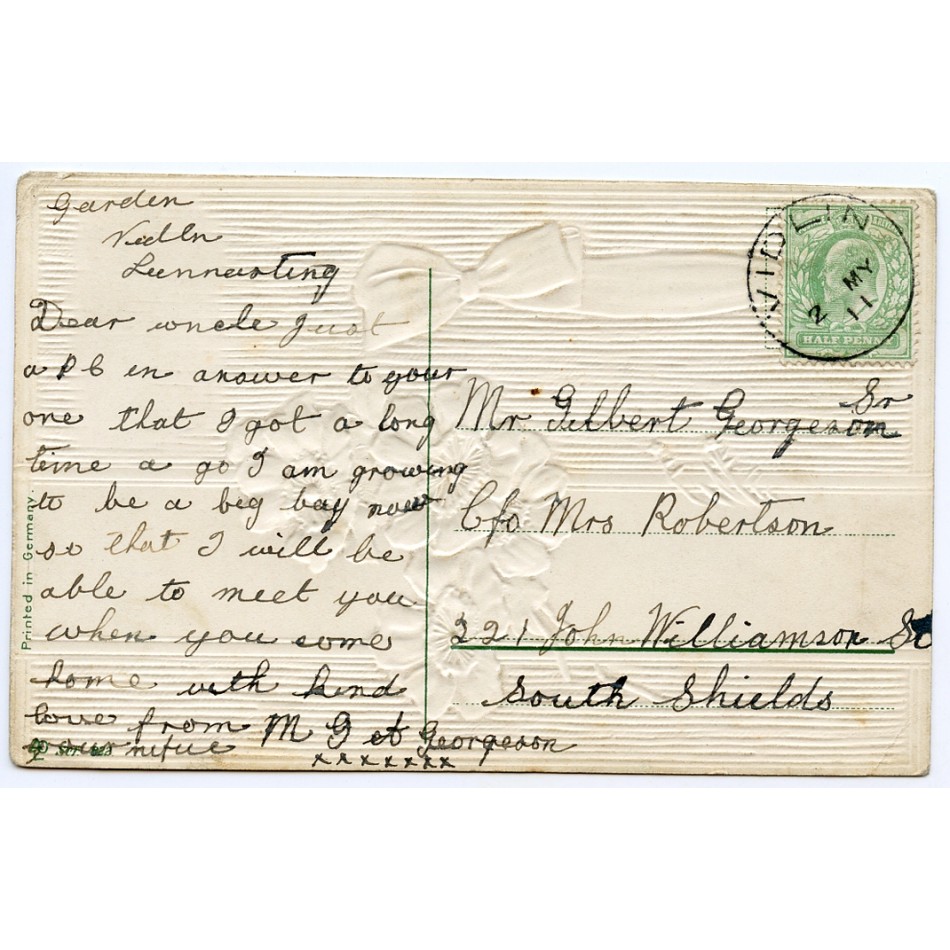 Garden
Vidln
Lunnasting
Dear uncle Just
a P C in answer to your
one that I got a long
time a go I am growing
to be a big bay now
so that I will be
able to meet you
when you come
home with kind
love from M G Georgeson
your nifue
x x x x x x x
Printed in Germany.
VIDLIN
2 MY
11
HALF PENNY
Mr Gilbert Georgeson Sr
C/o Mrs Robertson
221 John Williamson St
South Shields